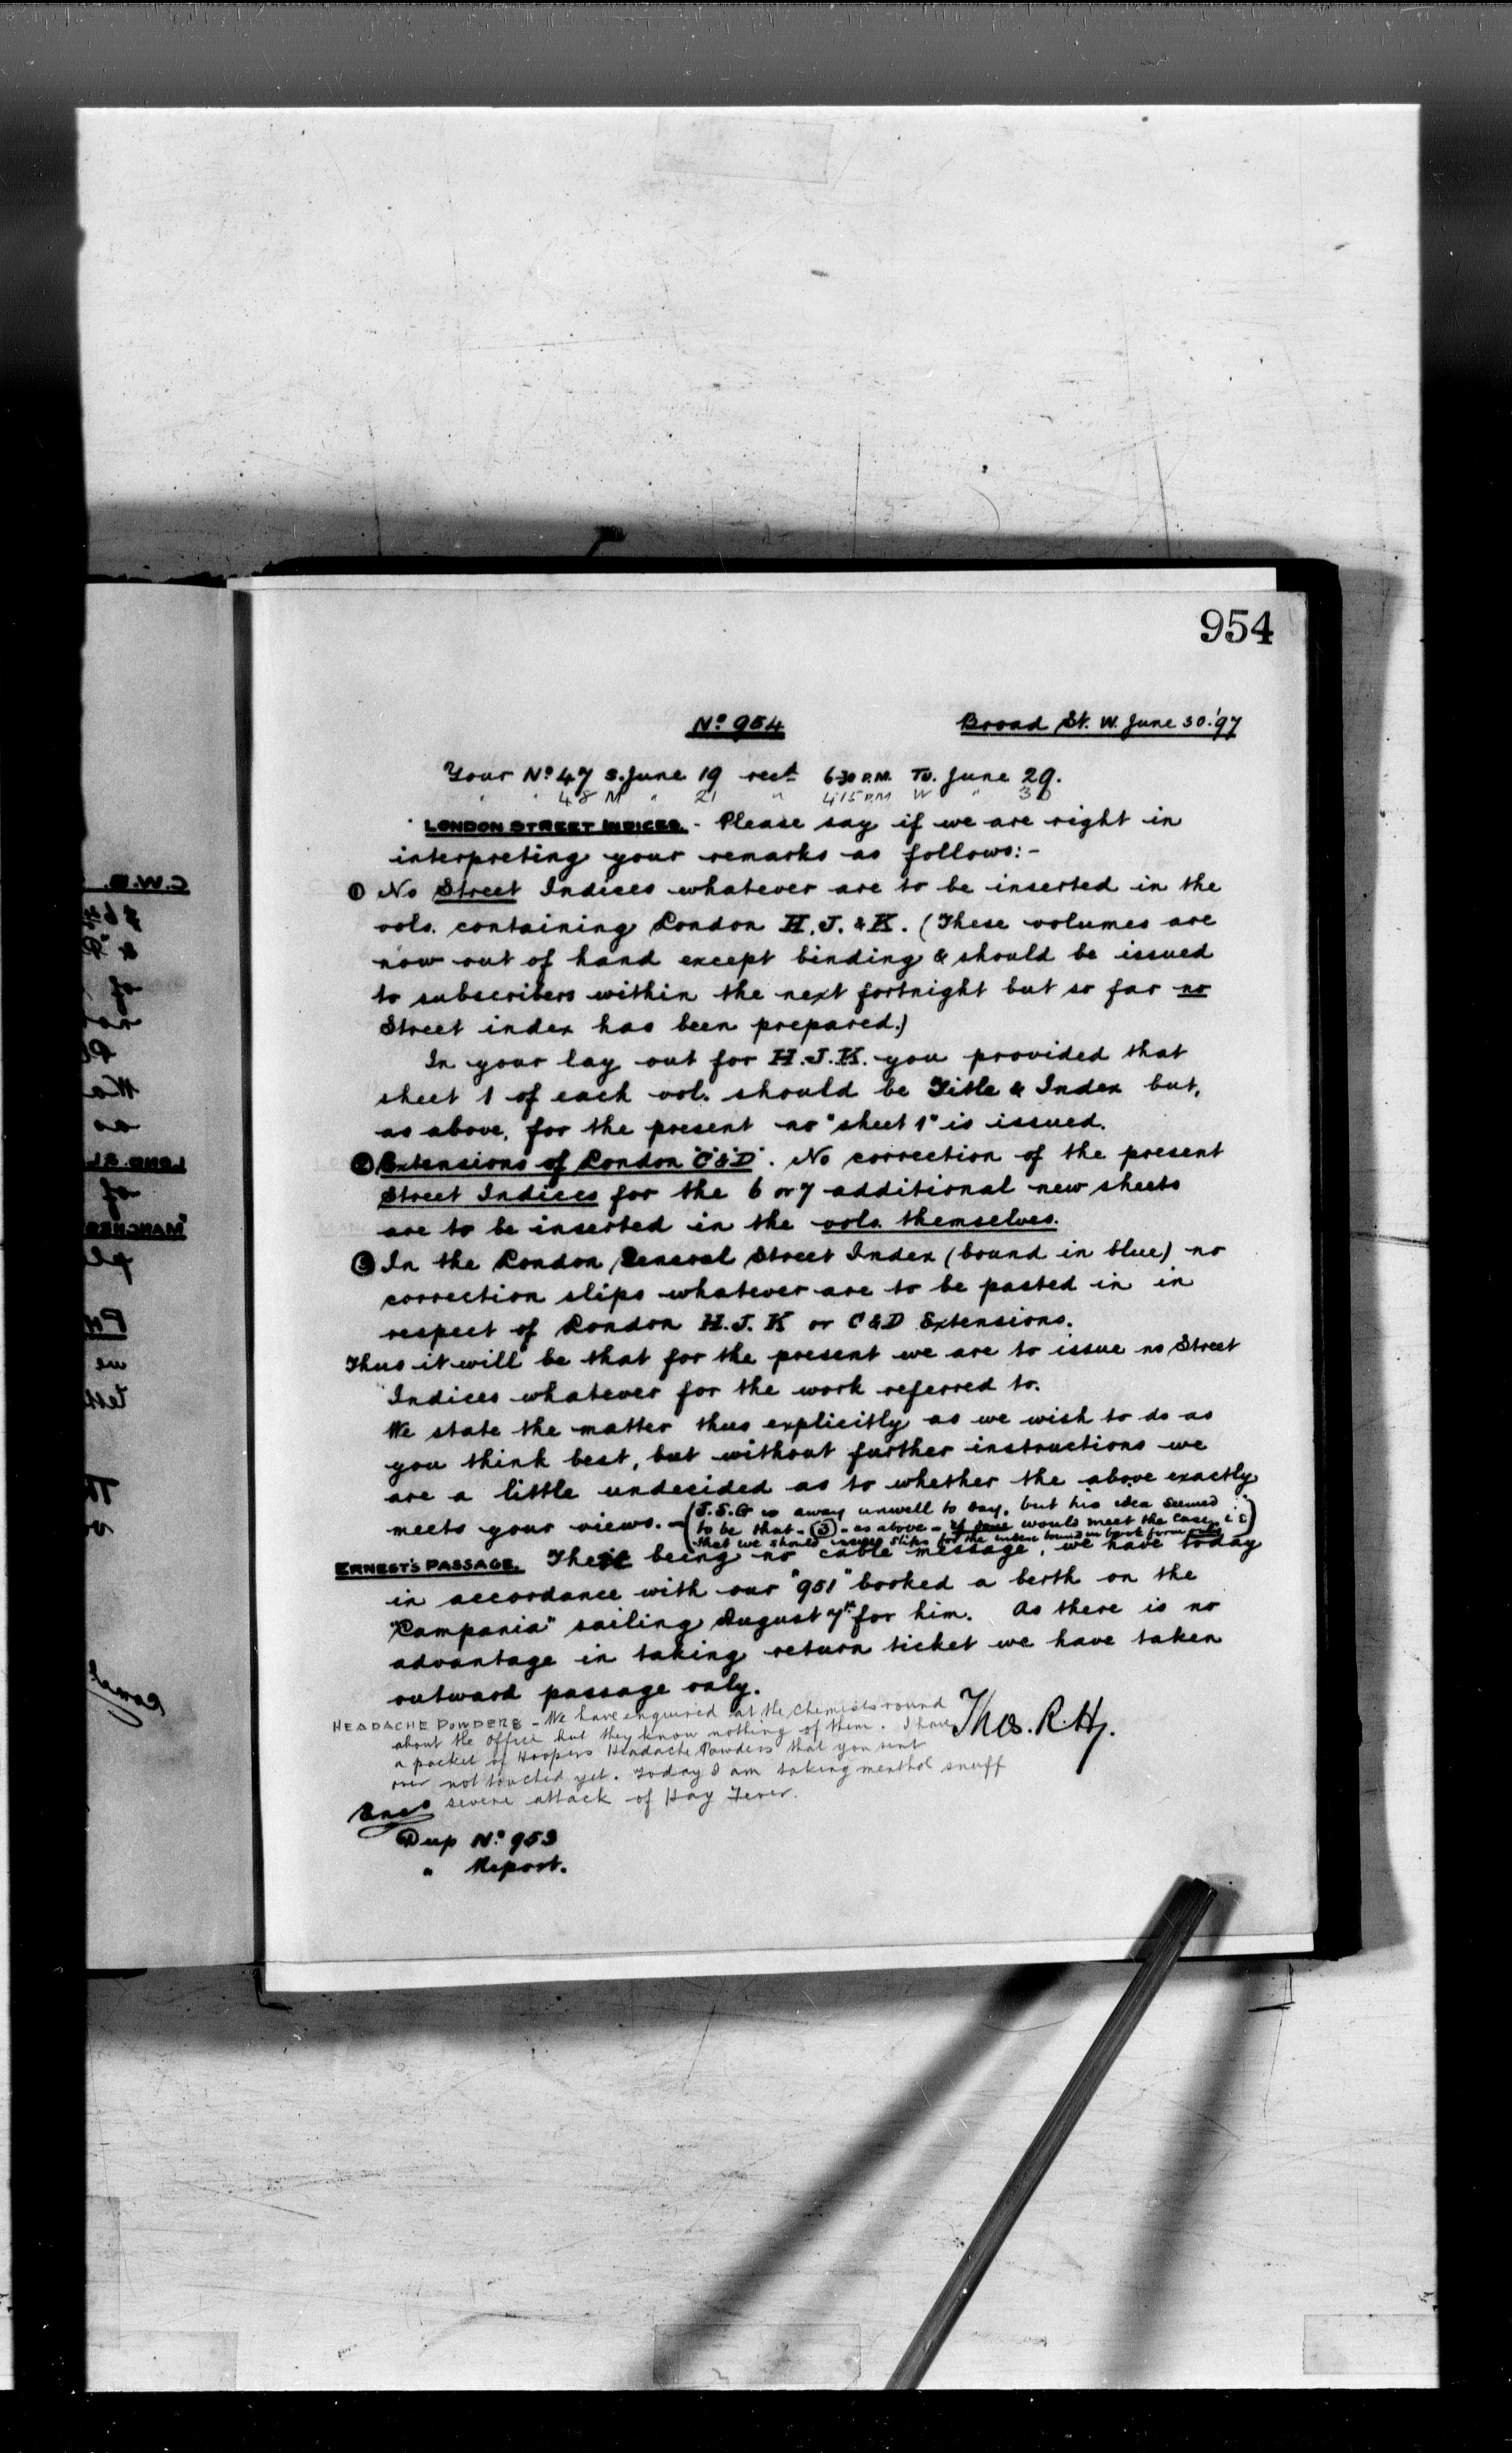 954
No 954
Broad St. W. June 30. '97
Your No 47 S. June 19 recd 6-30 P.M. Tu. June 29.
" " 48 M " 21 " 4.15 PM W " 30
LONDON STREET INDICES. - Please say if we are right in
interpreting your remarks as follows:-
① No Street Indices whatever are to be inserted in the
vols. containing London H, J. & K. (These volumes are
now out of hand except binding & should be issued
to subscribers within the next fortnight but so far no
Street index has been prepared.)
In your lay out for H. J. K. you provided that
sheet 1 of each vol. should be Title & Index but,
as above, for the present no "sheet 1" is issued.
② Extensions of London "C" & "D". No correction of the present
Street Indices for the 6 or 7 additional new sheets
are to be inserted in the vols. themselves.
③ In the London General Street Index (bound in blue) no
correction slips whatever are to be pasted in in
respect of London H. J. K or C & D Extensions.
Thus it will be that for the present we are to issue no Street
Indices whatever for the work referred to.
We state the matter thus explicitly as we wish to do as
you think best, but without further instructions we
are a little undecided as to whether the above exactly
meets your views. - (J.S.G is away unwell to day, but his idea seemed
to be that - ③ - as above - would meet the case, i e
that we should slips for the index bound in book form only)
ERNEST'S PASSAGE. There being no cable message, we have today
in accordance with our "951" booked a berth on the
"Campania" sailing August 7th for him. As there is no
advantage in taking return ticket we have taken
outward passage only.
HEADACHE POWDERS - We have enquired at the Chemists round
about the office but they know nothing of them. I have
a packet of Hoopers Headache Powders that you sent
over not touched yet. Today I am taking menthol snuff
severe attack of Hay Fever.
Thos. R. Hy.
Encs
Dup No. 953
" Report.
C.W.B.